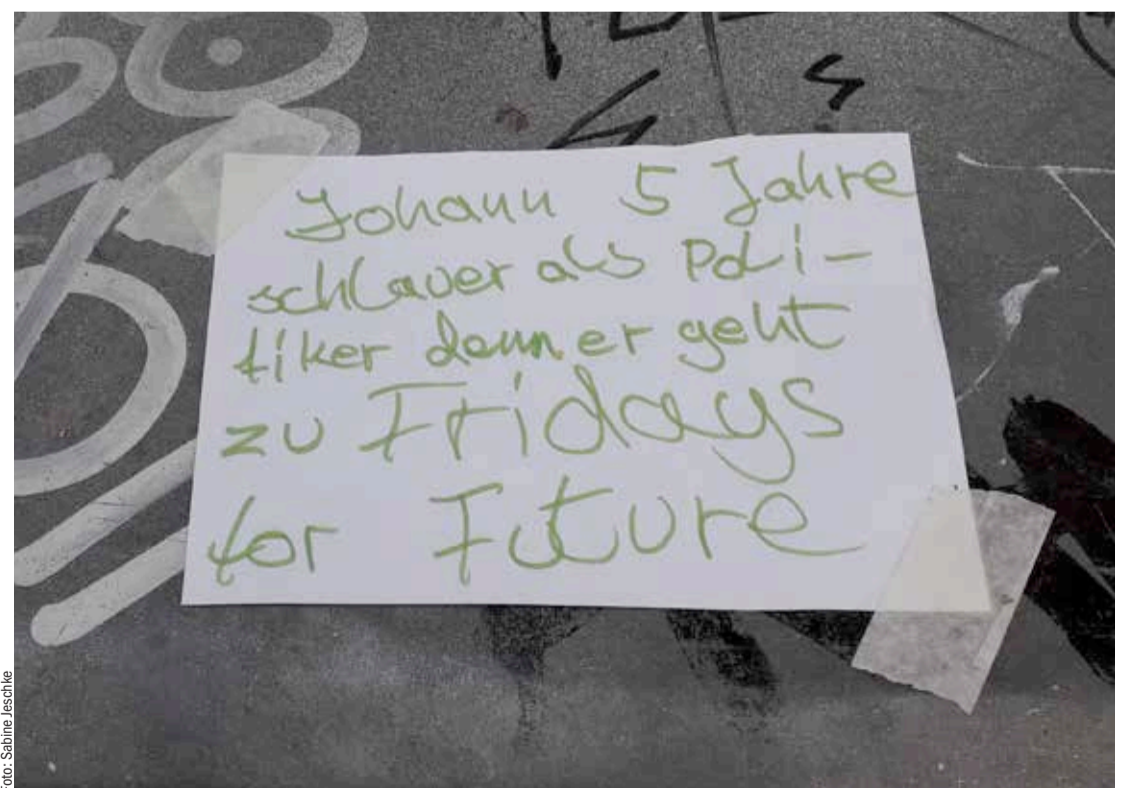 Johann 5 Jahre
schlauer als Poli-
tiker denn er geht
zu Fridays
for Future
Foto: Sabine Jeschke